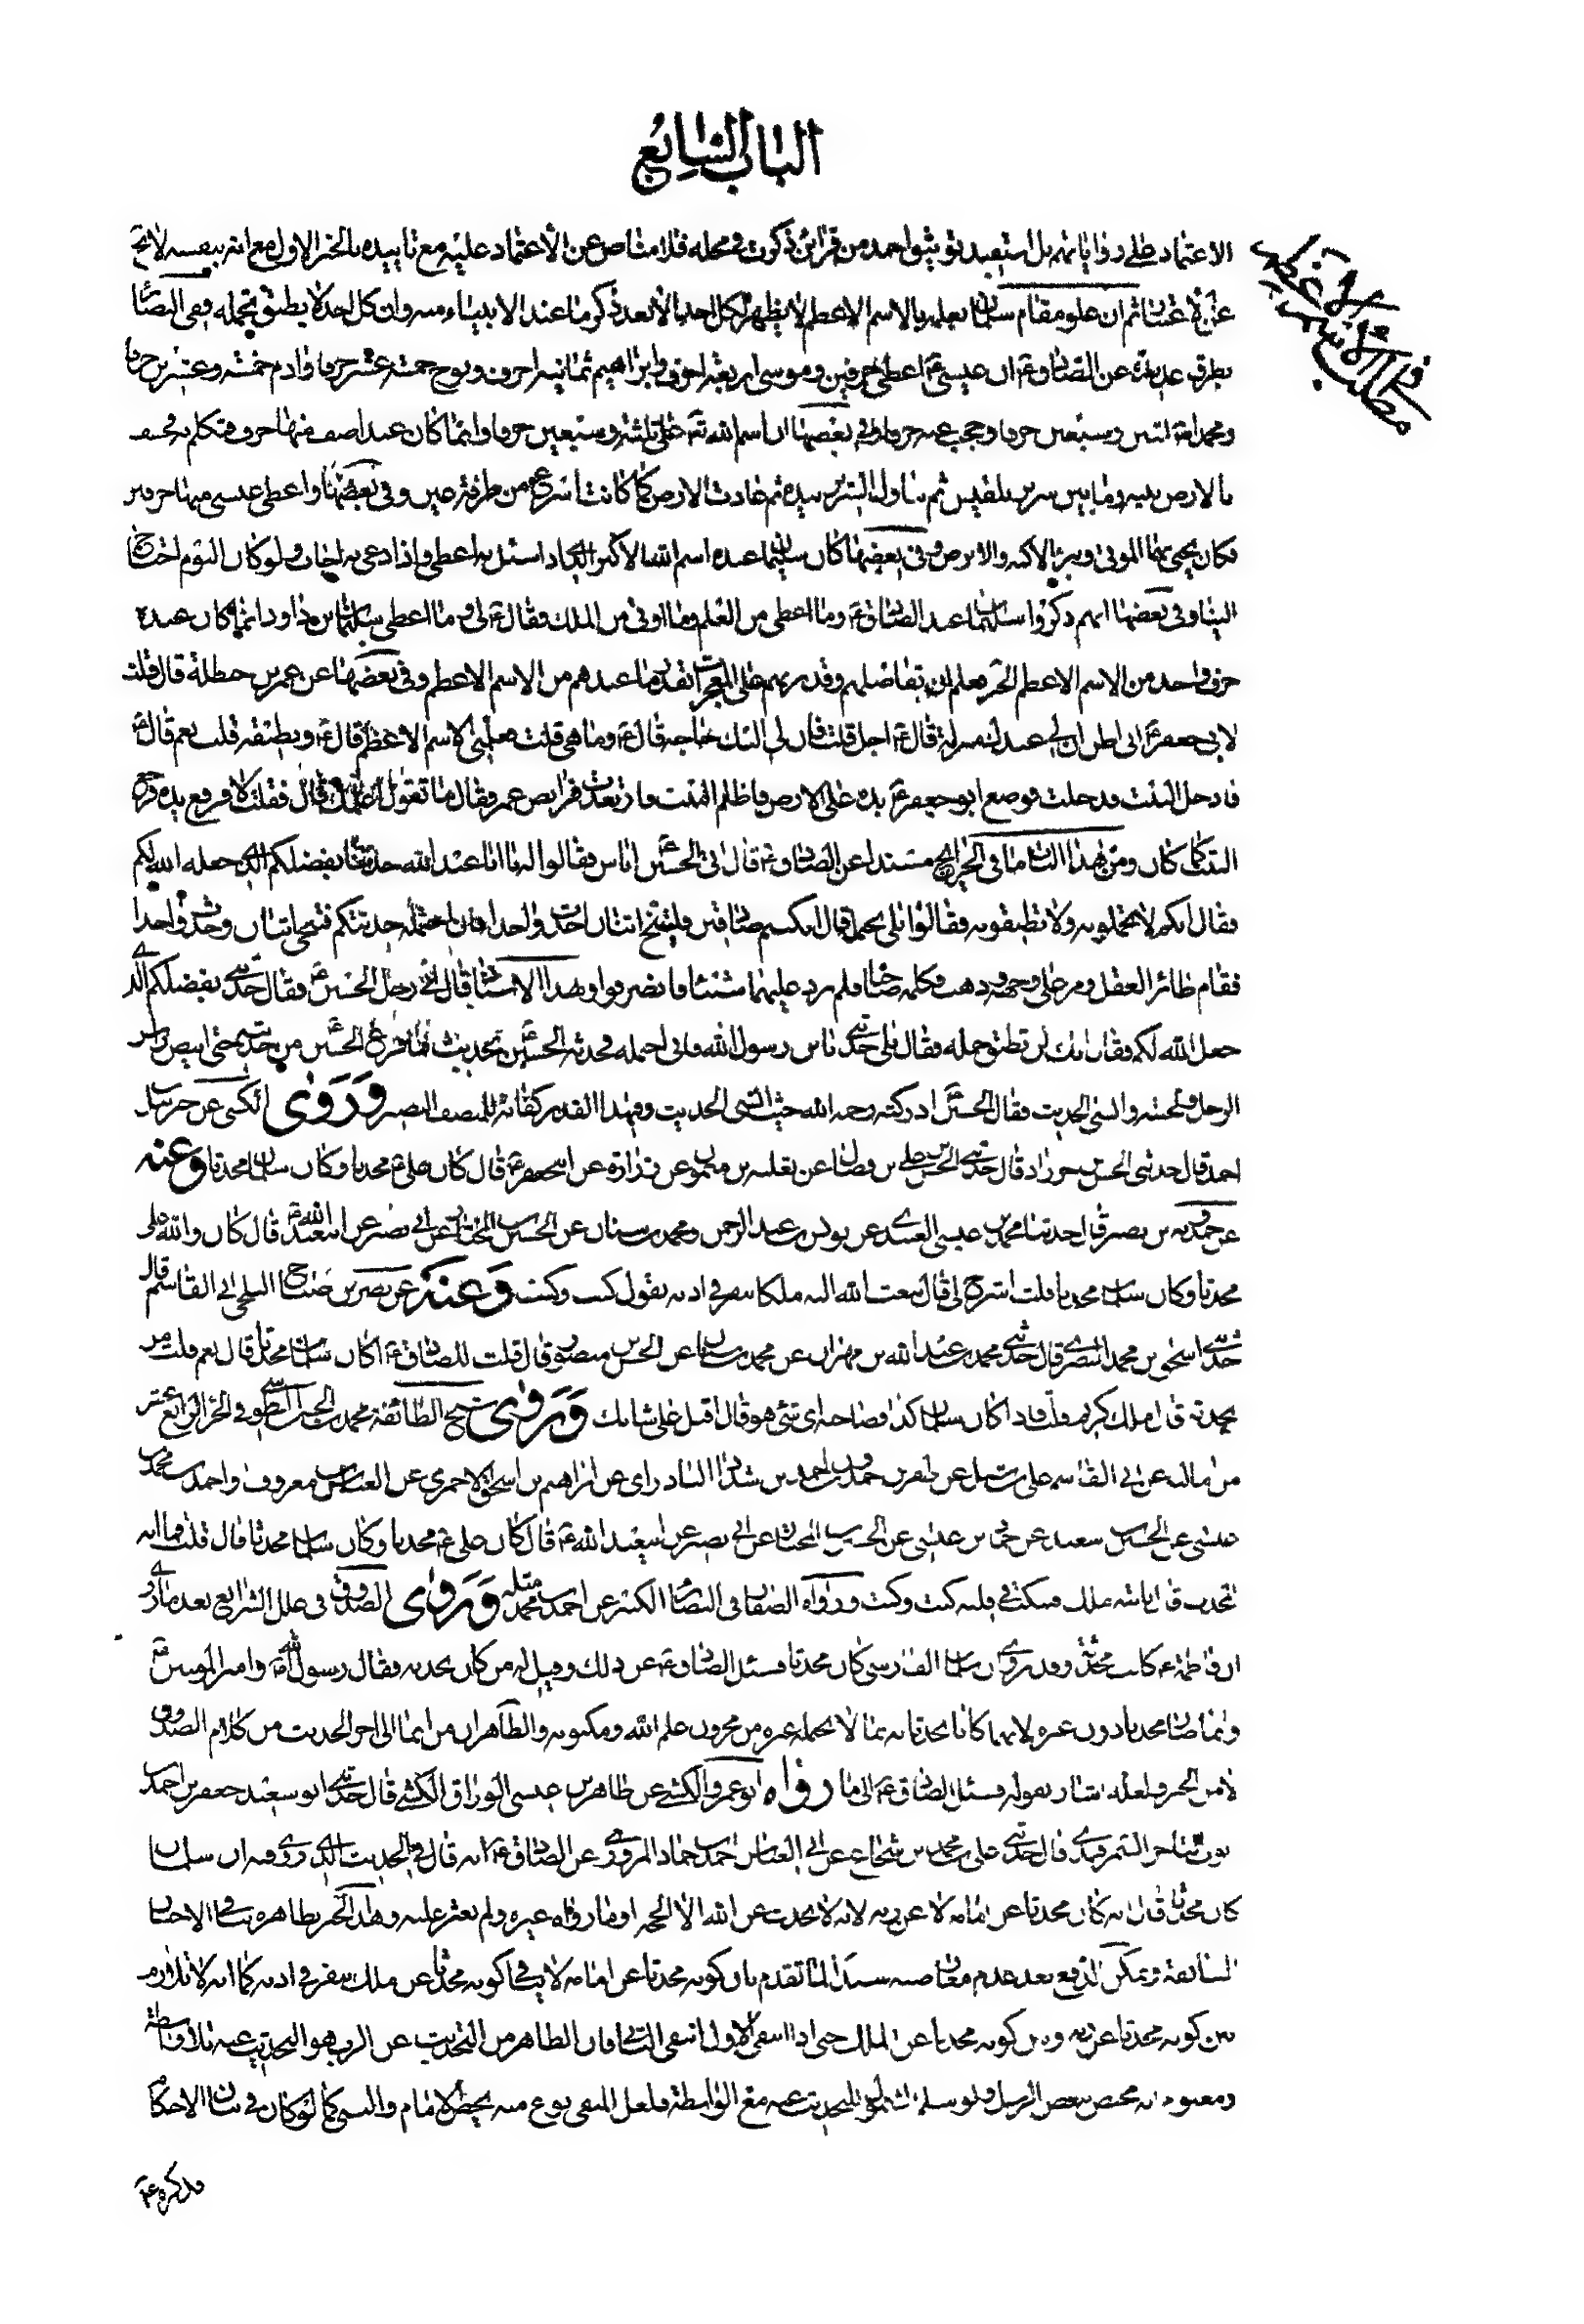 الباب السابع
الاعتماد على رواياتهم بل استفيد توثيق احمد من قرائن ذكرت في محله فلا مناص عن الاعتماد عليه مع تأييده بالخبر الاول مع انه بنفسه لا يخ
ثم ان علو مقام سلمان بعلمه بالاسم الاعظم لا يظهر لكل احد الا بعد ذكر ما عند الانبياء منه وان كل احد لا يطيق تحمله ففي البصائر
بطرق عديدة عن الصادق ع ان عيسى ع اعطى حرفين وموسى اربعة احرف وابراهيم ثمانية احرف ونوح خمسة عشر حرفا وادم خمسة وعشرين حرفا
ومحمد اثنين وسبعين حرفا وحجب عنه حرفا وفي بعضها ان اسم الله تع على ثلثة وسبعين حرفا وانما كان عند اصف منها حرف فتكلم به فخسف
بالارض بينه وما بين سرير بلقيس ثم تناول السرير بيده ثم عادت الارض كما كانت اسرع من طرفة عين وفي بعضها واعطى عيسى منها حرفين
فكان يحيي بهما الموتى ويبرئ الاكمه والابرص وفي بعضها كان سليمان عنده اسم الله الاكبر الذي اذا سئل به اعطى واذا دعى به اجاب ولو كان اليوم احتاج
الينا وفي بعضها انهم ذكروا سليمان عند الصادق ع وما اعطى من العلم وما اوتى من الملك فقال ع لي وما اعطى سليمان بن داود انما كان عنده
حرف واحد من الاسم الاعظم الخبر فعلم ان تفاضلهم وقدرتهم على المعجزات بقدر ما عندهم من الاسم الاعظم وفي بعضها عن عمر بن حنظلة قال قلت
لابي جعفر ع اني اظن ان لي عندك منزلة قال ع اجل قلت فان لي اليك حاجة قال ع وما هي قلت تعلمني الاسم الاعظم قال ع وتطيقه قلت نعم قال ع
فادخل البيت فدخلت فوضع ابو جعفر ع يده على الارض فاظلم البيت فارتعدت فرائص عمر فقال ما تقول اعلمك قال فقلت لا فرفع يده فرجع
البيت كما كان ومن هذا الباب ما في الخرايج مسندا عن الصادق ع قال اتى الحسين ع اناس فقالوا له يا ابا عبد الله حدثنا بفضلكم الذي جعله الله لكم
فقال انكم لا تحتملونه ولا تطيقونه فقالوا بلى نحتمل قال ان كنتم صادقين فليتنح اثنان احدث واحدا فان احتمله حدثتكم فتنحى اثنان وحدث واحدا
فقام طائر العقل ومر على وجهه وذهب وكلمه صاحباه فلم يرد عليهما شيئا فانصرفوا وبهذا الاسناد قال اتى رجل الحسين ع فقال حدثني بفضلكم الذي
جعل الله لكم فقال انك لن تطيق حمله فقال بلى حدثني يابن رسول الله فاني احمله فحدثه الحسين ع بحديث فما فرغ الحسين ع من حديثه حتى ابيض راس
الرجل ولحيته وانسى الحديث فقال الحسين ع ادركته رحمة الله حيث انسى الحديث وفي هذا القدر كفاية للمنصف البصير وروى الكشي عن جبرئيل بن
احمد قال حدثني الحسن بن خرزاد قال حدثني الحسن بن علي بن فضال عن ثعلبة بن ميمون عن زرارة عن ابي جعفر ع قال كان علي ع محدثا وكان سلمان محدثا وعنه
عن حمدويه بن نصير قال حدثنا محمد بن عيسى العبيدي عن يونس بن عبد الرحمن ومحمد بن سنان عن الحسين بن المختار عن ابي بصير عن ابي عبد الله ع قال كان والله علي
محدثا وكان سلمان محدثا قلت اشرح لي قال يبعث الله اليه ملكا ينقر في اذنه يقول كيت وكيت وعنه عن نصر بن صباح البلخي ابي القاسم قال
حدثني اسحق بن محمد البصري قال حدثني محمد بن عبد الله بن مهران عن محمد بن سنان عن الحسن بن منصور قال قلت للصادق ع اكان سلمان محدثا قال نعم قلت من
يحدثه قال ملك كريم قلت فاذا كان سلمان كذا فصاحبه اي شيء هو قال اقبل على شانك وروى شيخ الطائفة محمد بن الحسن الطوسي في الجزء الرابع عشر
من اماليه عن ابي القاسم علي بن شبل عن ظفر بن حمدون بن احمد بن شداد البادرائي عن ابراهيم بن اسحق الاحمري عن العباس بن معروف واحمد بن محمد بن
عيسى عن الحسين بن سعيد عن حماد بن عيسى عن الحسين بن المختار عن ابي بصير عن ابي عبد الله ع قال كان علي ع محدثا وكان سلمان محدثا قال قلت فما اية
المحدث قال ياتيه ملك فينكت في قلبه كيت وكيت ورواه الصفار في البصائر الكبير عن احمد بن محمد مثله وروى الصدوق في علل الشرايع بعد ما روى
ان فاطمة ع كانت محدثة وقد روي ان سلمان الفارسي كان محدثا فسئل الصادق ع عن ذلك وقيل له من كان يحدثه فقال رسول الله ص وامير المؤمنين ع
وانما صار محدثا دون غيره لانهما كانا يحدثانه بما لا يحمله غيره من مخزون علم الله ومكنونه والظاهر ان من انما الى اخر الحديث من كلام الصدوق
لا من الخبر ولعله اشار بقوله فسئل الصادق ع الى ما رواه ابو عمرو الكشي عن طاهر بن عيسى الوراق الكشي قال حدثني ابو سعيد جعفر بن احمد بن
ايوب التاجر السمرقندي قال حدثني علي بن محمد بن شجاع عن ابي العباس احمد بن حماد المروزي عن الصادق ع انه قال في الحديث الذي روى فيه ان سلمان
كان محدثا قال انه كان محدثا عن امامه لا عن ربه لانه لا يحدث عن الله الا الحجة او ما رواه غيره ولم نعثر عليه وهذا الخبر بظاهره ينافي الاخبار
السابقة ويمكن الدفع بعد عدم معارضته سندا لما تقدم بان كونه محدثا عن امامه لا ينافي كونه محدثا عن ملك ينقر في اذنه كما انه لا تلازم
بين كونه محدثا عن ربه وبين كونه محدثا عن الملك حتى اذا انتفى الاول انتفى الثاني فان الظاهر من التحديث عن الرب هو التحديث عنه بلا واسطة
ومعلوم انه مختص ببعض الرسل ولو سلم شموله للتحديث عنه مع الواسطة فلعل المنفي نوع منه يختص الامام والنبي كما لو كان في بيان الاحكام